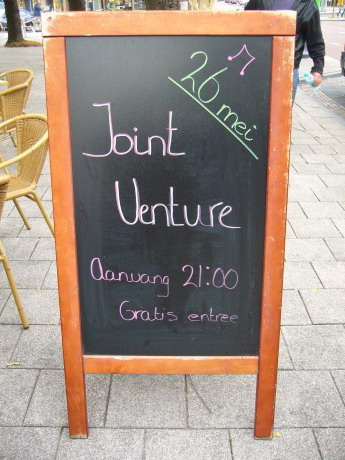 26 mei
Joint
Venture
Aanvang 21:00
Gratis entree